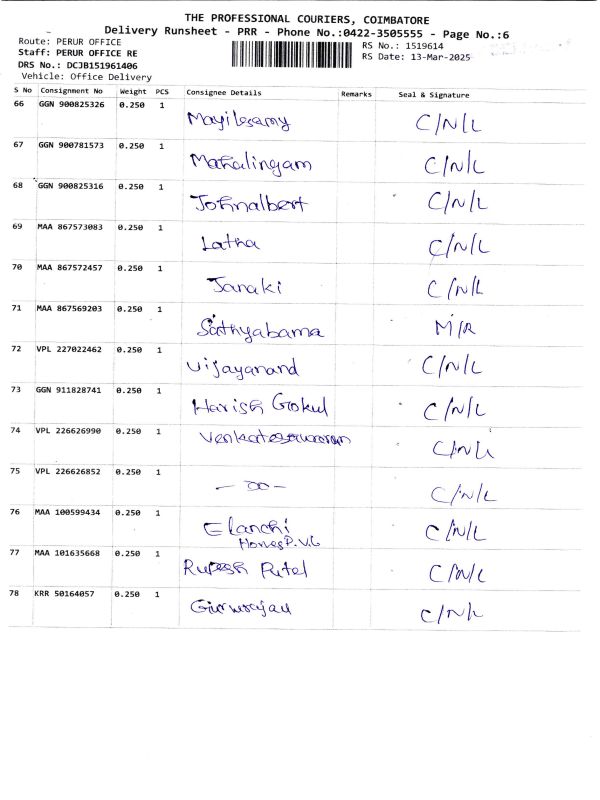 THE PROFESSIONAL COURIERS, COIMBATORE
Delivery Runsheet - PRR - Phone No.:0422-3505555 - Page No.:6
Route: PERUR OFFICE
RS No.: 1519614
Staff: PERUR OFFICE RE
RS Date: 13-Mar-2025
DRS No.: DCJB151961406
Vehicle: Office Delivery
S No Consignment No Weight PCS Consignee Details Remarks Seal & Signature
66 GGN 900825326 0.250 1 Mayilesamy C/N/L
67 GGN 900781573 0.250 1 Mahalingam C/N/L
68 GGN 900825316 0.250 1 Johnalbert C/N/L
69 MAA 867573083 0.250 1 Latha C/N/L
70 MAA 867572457 0.250 1 Janaki C/N/L
71 MAA 867569203 0.250 1 Sathyabama M/R
72 VPL 227022462 0.250 1 Vijayanand C/N/L
73 GGN 911828741 0.250 1 Harish Gokul C/N/L
74 VPL 226626990 0.250 1 C/N/L
75 VPL 226626852 0.250 1 — DO — C/N/L
76 MAA 100599434 0.250 1 Elanchi C/N/L
Homes P.V.L
77 MAA 101635668 0.250 1 Rupesh Patel C/N/L
78 KRR 50164057 0.250 1 C/N/L